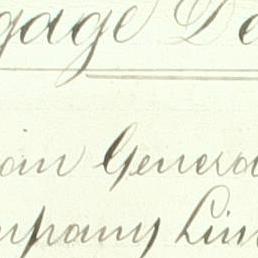 gage De
an Genera
mpany Lim